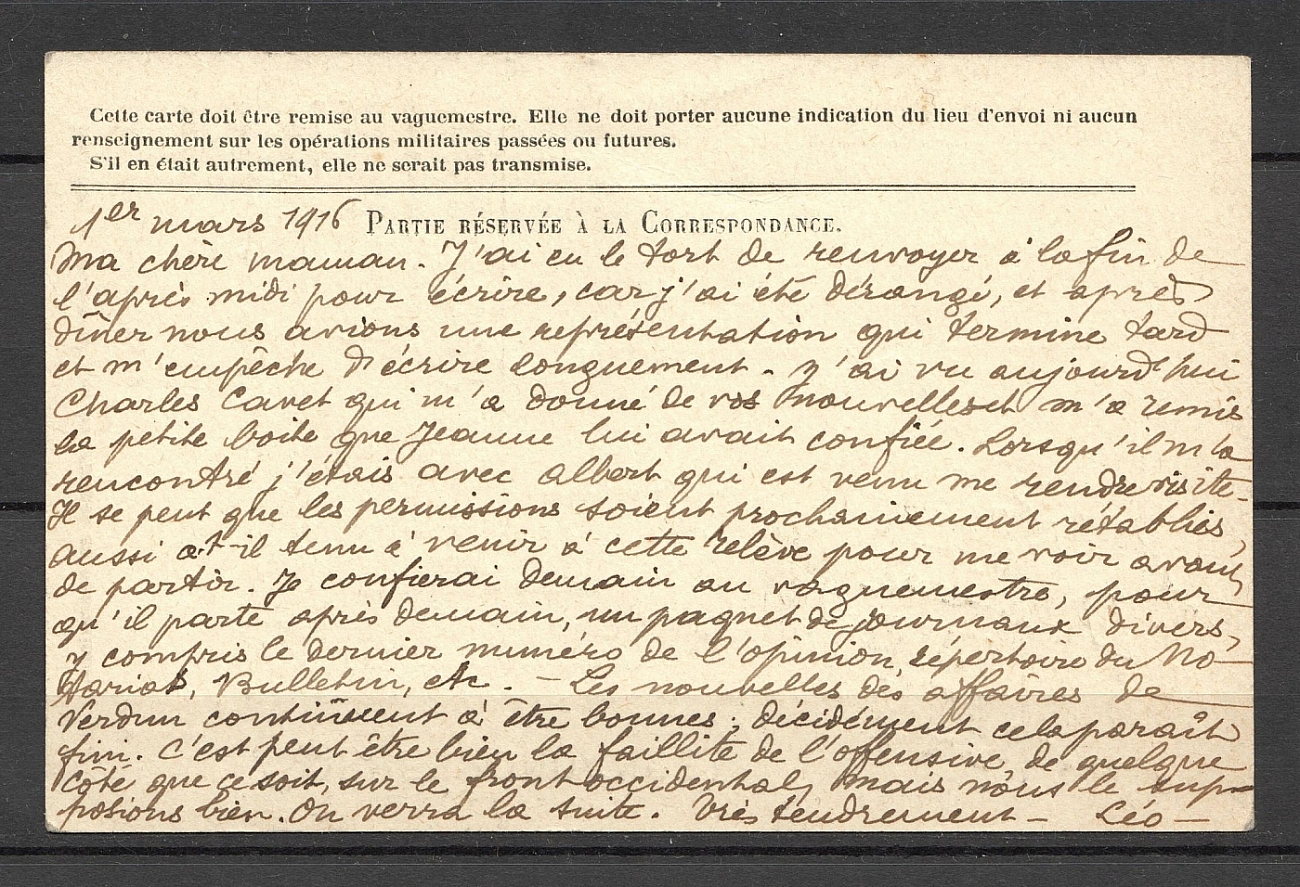 Cette carte doit être remise au vaguemestre. Elle ne doit porter aucune indication du lieu d'envoi ni aucun
renseignement sur les opérations militaires passées ou futures.
S'il en était autrement, elle ne serait pas transmise.
1er mars 1916 PARTIE RÉSERVÉE À LA CORRESPONDANCE.
Ma chère maman. J'ai eu le tort de renvoyer à la fin de
l'après midi pour écrire, car j'ai été dérangé, et après
dîner nous avions une représentation qui termine tard
et m'empêche d'écrire longuement. J'ai vu aujourd'hui
Charles Cavet qui m'a donné de vos nouvelles et m'a remis
la petite boite que Jeanne lui avait confiée. Lorsqu'il m'a
rencontré j'étais avec Albert qui est venu me rendre visite.
Il se peut que les permissions soient prochainement rétablies,
aussi a-t-il tenu à venir à cette relève pour me voir avant
de partir. Je confierai demain au vaguemestre, pour
qu'il parte après demain, un paquet de journaux divers,
y compris le dernier numéro de l'opinion, répertoire du No-
tariat, Bulletin, etc. - Les nouvelles des affaires de
Verdun continuent à être bonnes ; décidément cela paraît
fini. C'est peut être bien la faillite de l'offensive de quelque
côté que ce soit, sur le front occidental, mais nous le sup-
posions bien. On verra la suite. Très tendrement - Léo -